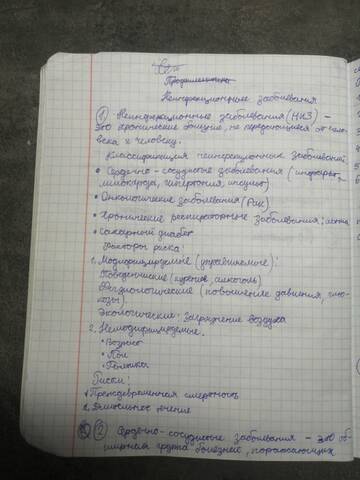 Неинфекционные заболевания
① Неинфекционные заболевания (НИЗ) -
это хронические болезни, не передающиеся от чело-
века к человеку.
Классификация неинфекционных заболеваний
• Сердечно-сосудистые заболевания (инфаркт
миокарда, гипертония, инсульт)
• Онкологические заболевания (Рак)
• Хронические респираторные заболевания:
• Сахарный диабет
Факторы риска:
1. Модифицируемые (управляемые):
Поведенческие (курение, алкоголь)
Физиологические (повышение давления, глю-
козы)
Экологические: загрязнение воздуха
2. Немодифицируемые.
• Возраст
• Пол
• Генетика
Риски:
1. Преждевременная смертность
2. Длительное лечение
② Сердечно-сосудистые заболевания - это об-
ширная группа болезней, поражающих